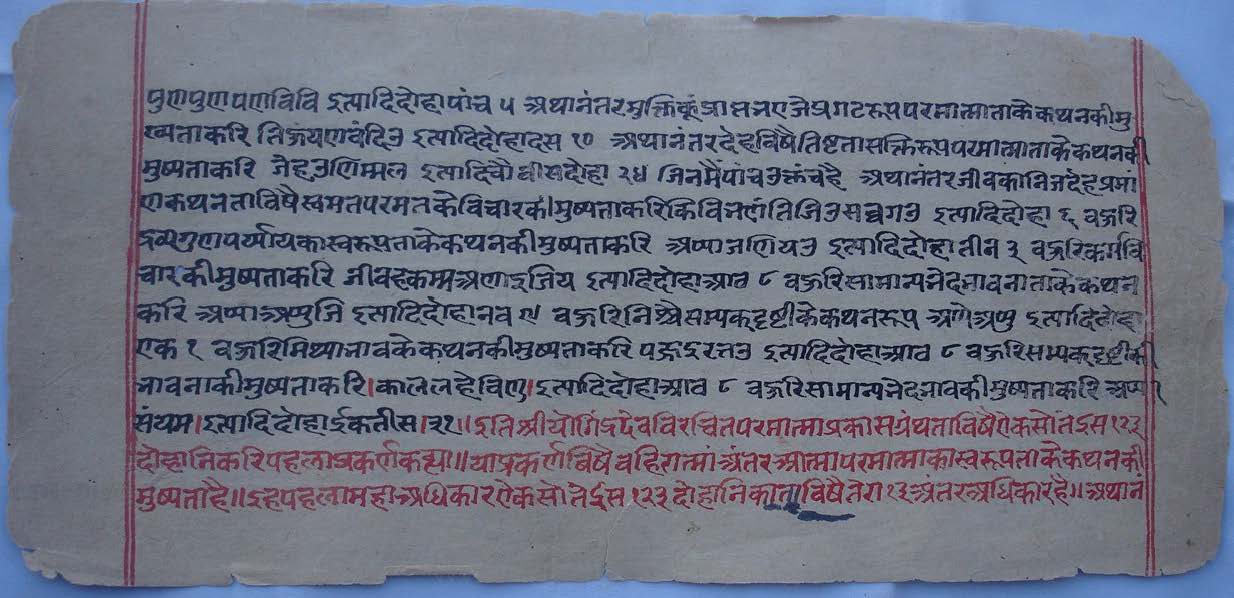 पुणपुणपणविवि इत्यादिदोहापांच ५ अथानंतरमुक्तिकूंप्राप्तभएजेप्रगटरूपपरमात्माताकेकथनकीमु
ख्यताकरि तिऊयणवंदिउ इत्यादिदोहादस १० अथानंतरदेहविषैतिष्टतासक्तिरूपपरमात्माताकेकथनकी
मुष्यताकरि जेहउणिम्मल इत्यादिचौवीसदोहा २४ जिनमैंपांच क्तंचहै अथानंतरजीवकानिजदेहप्रमां
णकथनताविषैस्वमतपरमतकेविचारकीमुष्यताकरिकिविभणंतिजिउसव्वगउ इत्यादिदोहा ६ वऊरि
द्रव्यगुणपर्यायकास्वरूपताकेकथनकीमुष्यताकरि अप्पाजणियउ इत्यादिदोहातीन ३ वऊरिकर्मवि
चारकीमुष्यताकरि जीवहकम्मअणाइजिय इत्यादिदोहाआठ ८ वऊरिसामान्यभेदभावनाताकेकथन
करि अप्पाअप्पुजि इत्यादिदोहानव ९ वऊरिनिश्चैसम्यकदृष्टीकेकथनरूप अप्पेअप्पु इत्यादिदोहा
एक १ वऊरिमिथ्याभावकेकथनकीमुष्यताकरि पज्जइरत्तउ इत्यादिदोहाआठ ८ वऊरिसम्यकदृष्टीकी
भावनाकीमुष्यताकरि।काललहेविणु।इत्यादिदोहाआठ ८ वऊरिसामान्यभेदभावकीमुष्यताकरि अप्पा
संयम।इत्यादिदोहाईकतीस।३१।।इतिश्रीयोगिंद्रदेवविरचितपरमात्माप्रकासग्रंथताविषैऐकसोतेईस १२३
दोहानिकरिपहलाप्रकर्णकह्या॥याप्रकर्णविषैवहिरात्मांअंतरआत्मापरमात्माकास्वरूपताकेकथनकी
मुष्यताहै॥इहपहलामहाअधिकारऐकसोतेईस १२३ दोहानिकाताविषैतेरा १३ अंतरअधिकारहै॥अथान